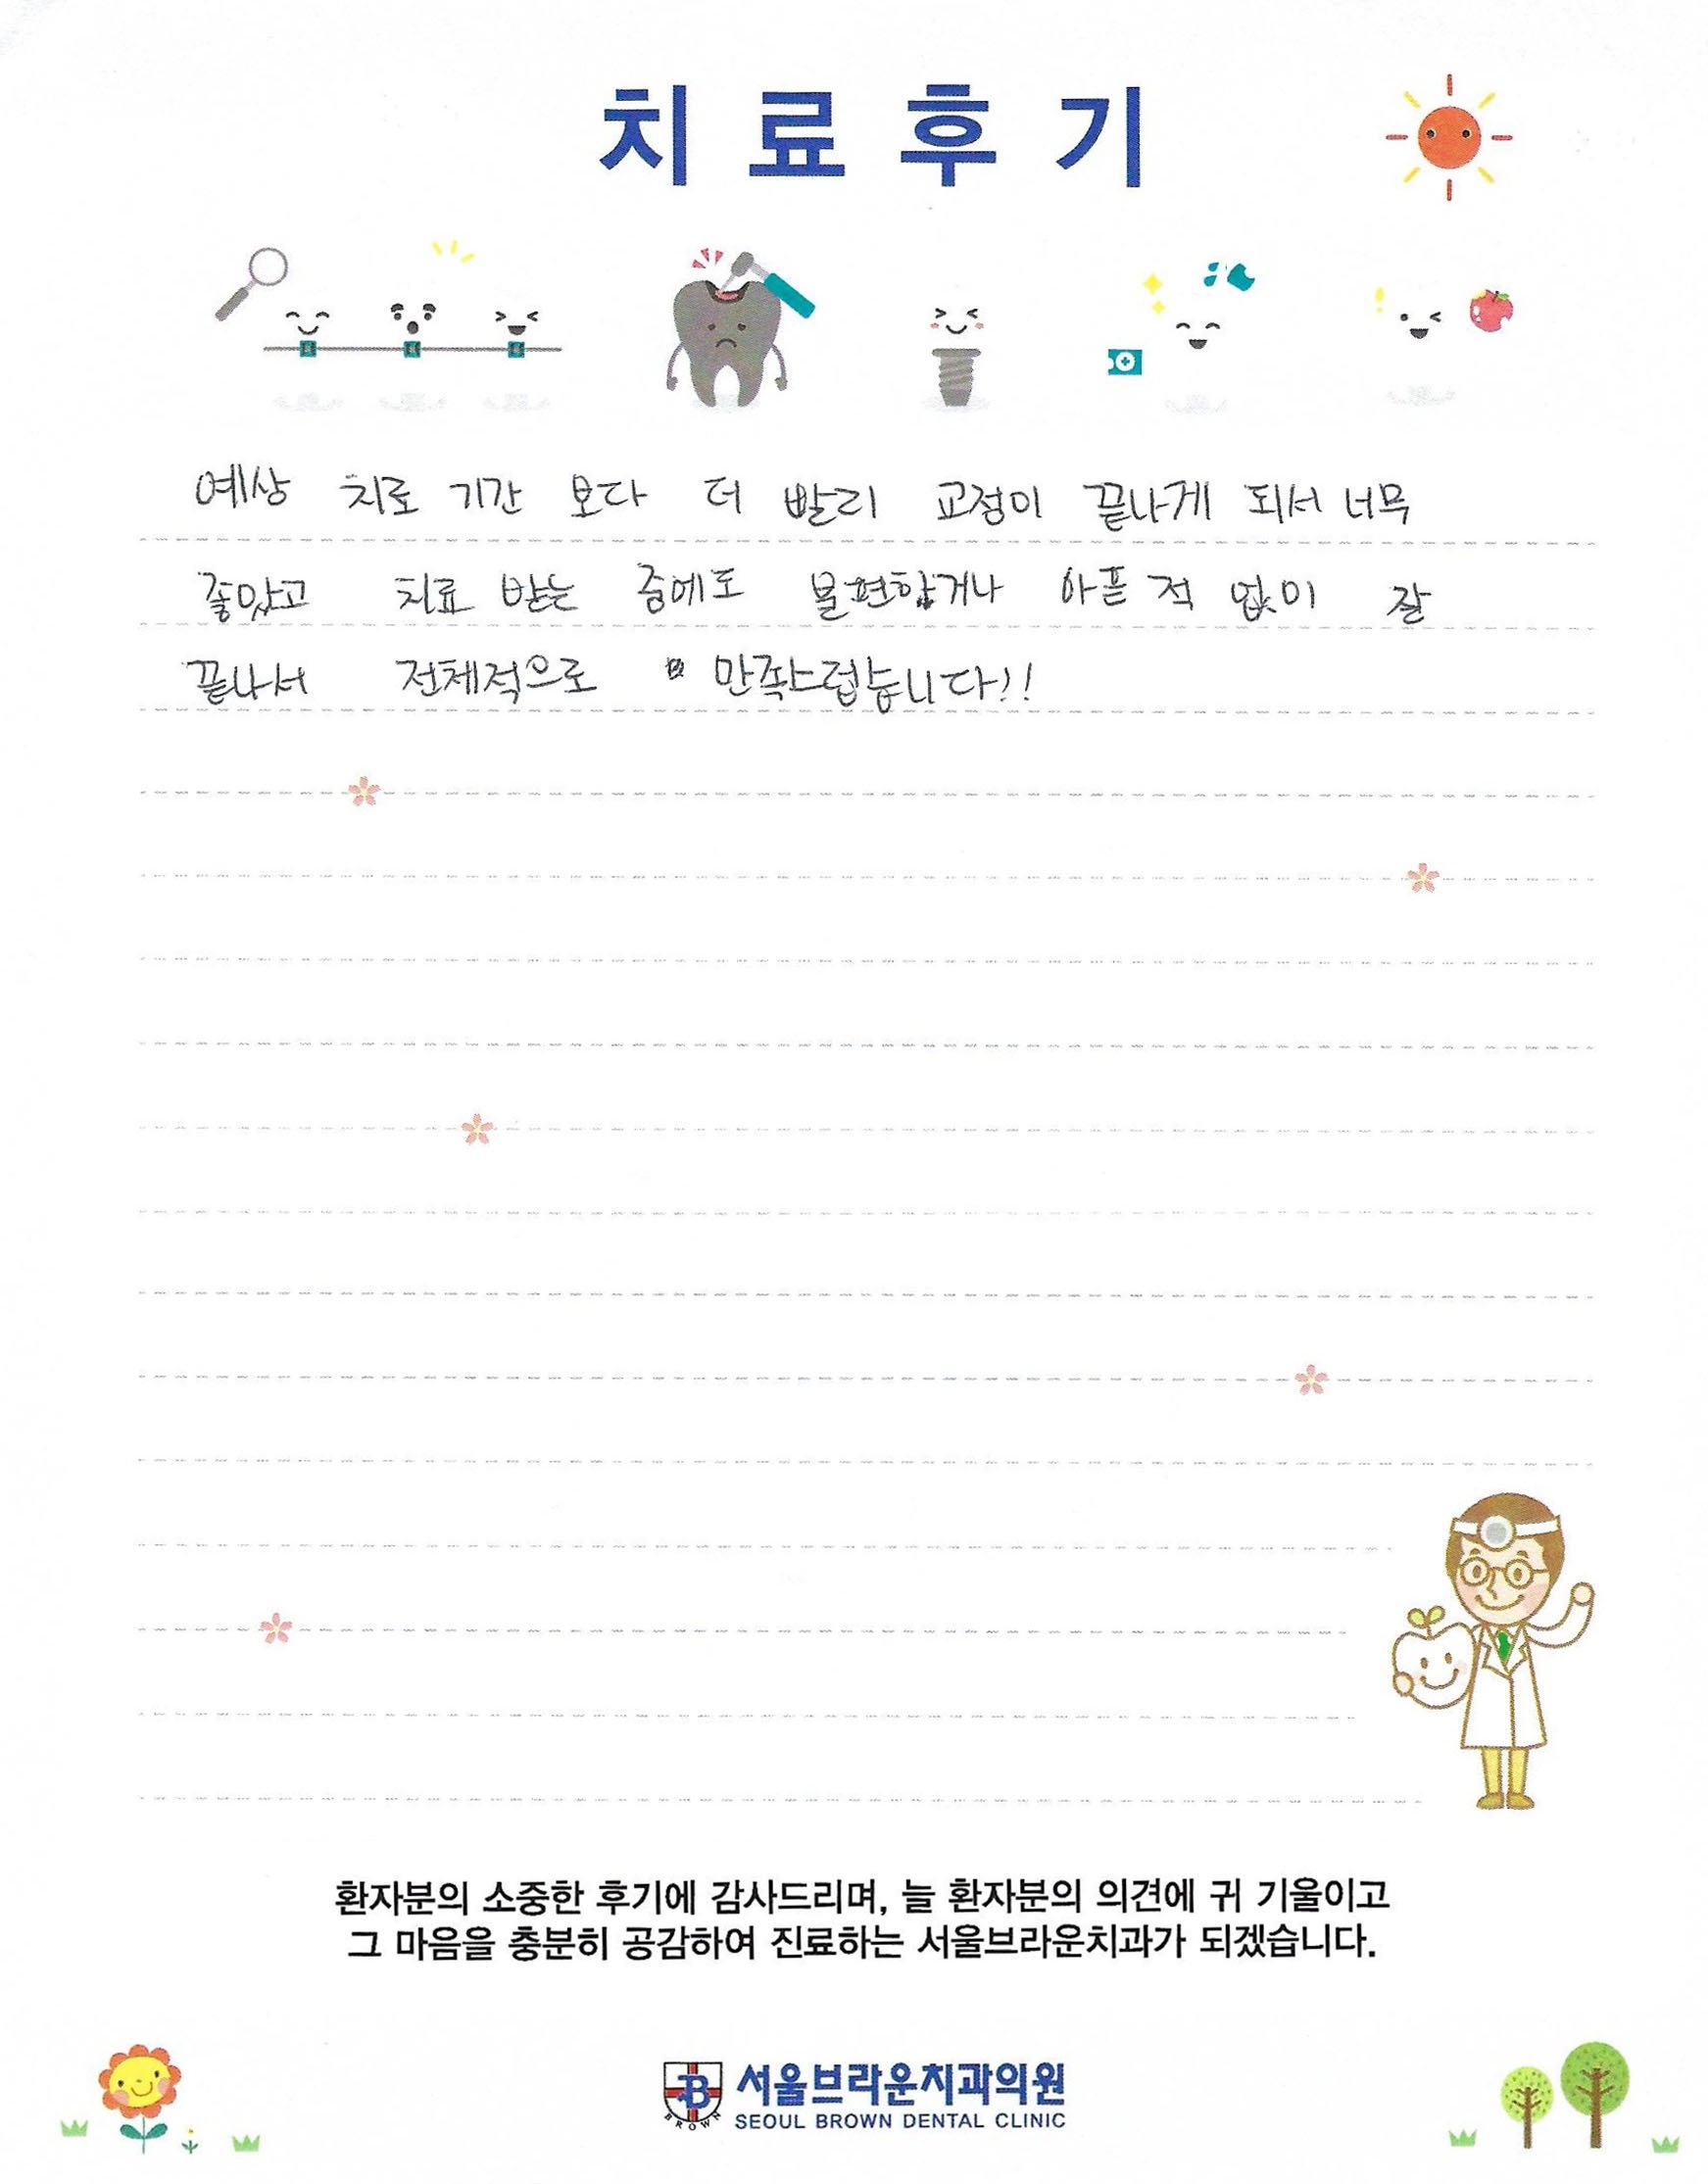 치료후기
예상 치료 기간 보다 더 빨리 교정이 끝나게 되서 너무
좋았고 치료 받는 중에도 불편함거나 아픈 적 없이 잘
끝나서 전체적으로 만족스럽습니다!!
환자분의 소중한 후기에 감사드리며, 늘 환자분의 의견에 귀 기울이고
그 마음을 충분히 공감하여 진료하는 서울브라운치과가 되겠습니다.
B
BROWN
서울브라운치과의원
SEOUL BROWN DENTAL CLINIC